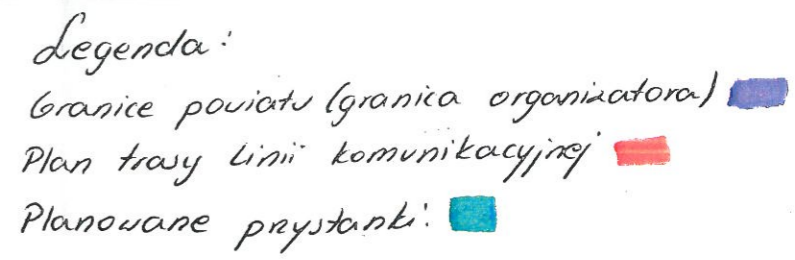 Legenda:
Granice powiatu (granica organizatora)
Plan trasy linii komunikacyjnej
Planowane przystanki: